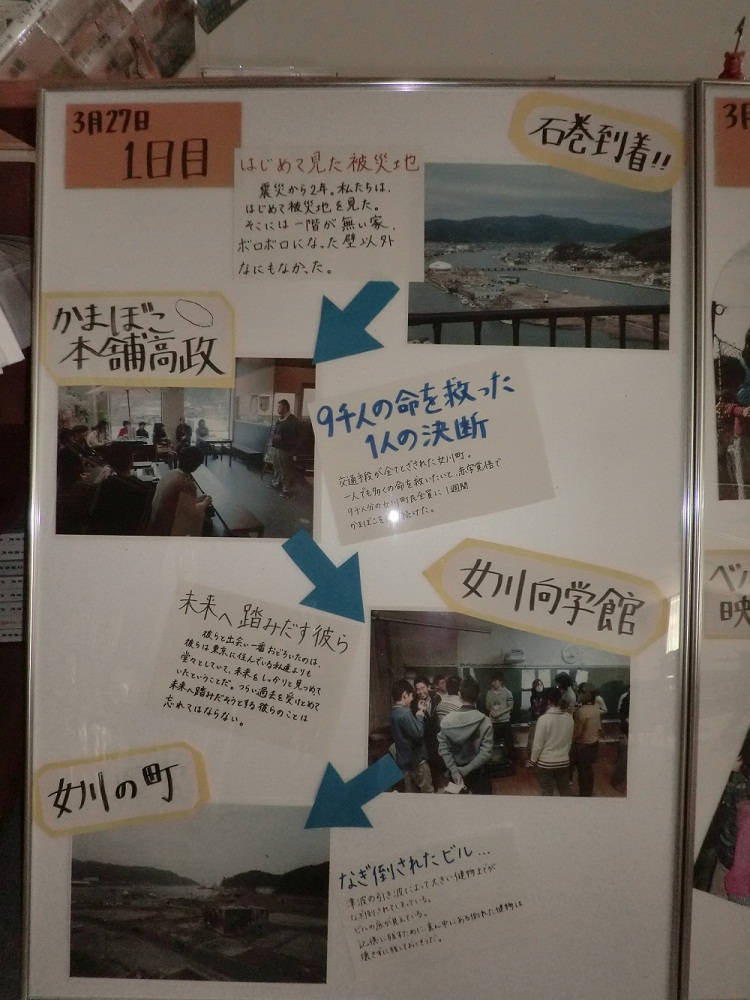 3月27日
1日目
石巻到着!!
はじめて見た被災地
震災から2年。私たちは、
はじめて被災地を見た。
そこには一階が無い家、
ボロボロになった壁以外
なにもなかった。
かまぼこ
本舗高政
9千人の命を救った
1人の決断
交通手段が全てとざされた女川町。
一人でも多くの命を救いたいと、赤字覚悟で
9千人分の女川町民全員に1週間
かまぼこを 続けた。
女川向学館
未来へ踏みだす彼ら
彼らと出会い一番おどろいたのは、
彼らは東京に住んでいる私達よりも
堂々としていて、未来をしっかりと見つめて
いたということだ。つらい過去を受けとめて
未来へ踏みだそうとする彼らのことは
忘れてはならない。
女川の町
なぎ倒されたビル…
津波の引き波によって大きい建物までが
なぎ倒されてしまっている。
ビルの底が見えている。
記憶に残すために、真ん中にある倒れた建物は
壊さずに残しておくそうだ。
3月
ベ
映